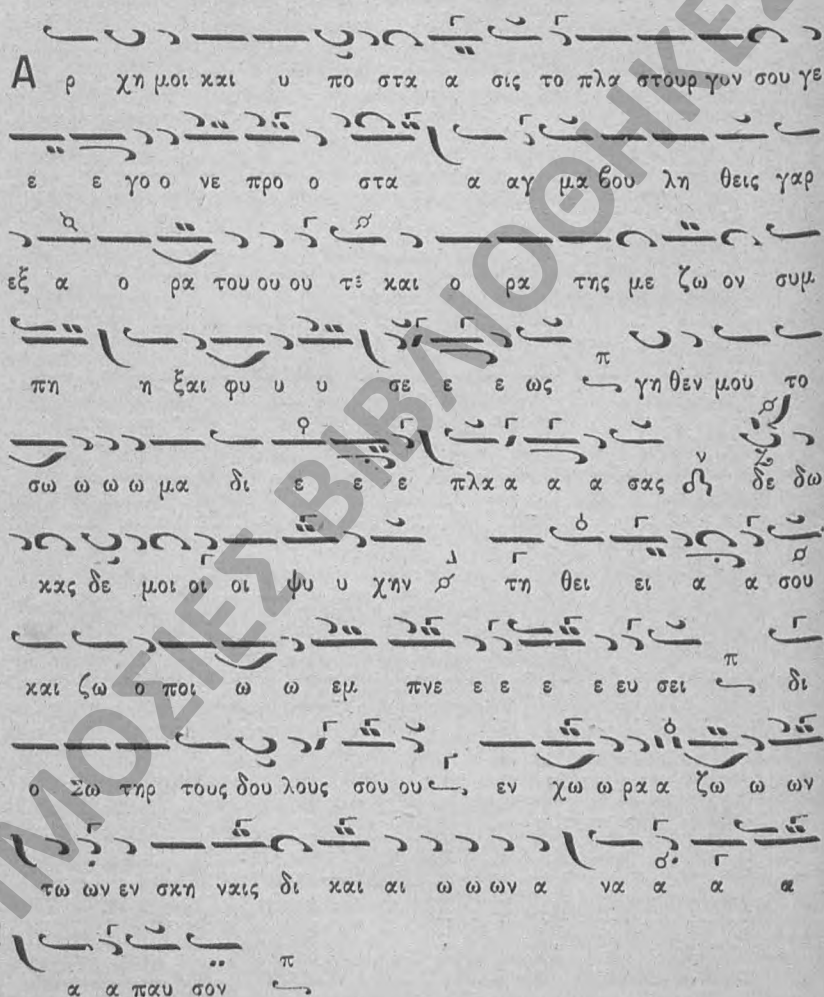 Α ρ χη μοι και υ πο στα α σις το πλα στουρ γυν σου γε
ε ε γο ο νε προ ο στα α αγ μα βου λη θεις γαρ
εξ α ο ρα του ου ου τε και ο ρα της με ζω ον συμ
πη η ξαι φυ υ υ σε ε ε ως π γη θεν μου το
σω ω ω ω μα δι ε ε ε πλα α α α σας ν δε δω
κας δε μοι οι οι ψυ υ χην τη θει ει α α σου
και ζω ο ποι ω ω εμ πνε ε ε ε ε ευ σει π δι
ο Σω τηρ τους δου λους σου ου εν χω ω ρα α ζω ω ων
τω ων εν σκη ναις δι και αι ω ω ων α να α α α
α α παυ σον π
ΗΜΟΣΙΕΣ ΒΙΒΛΙΟΘΗΚΕΣ